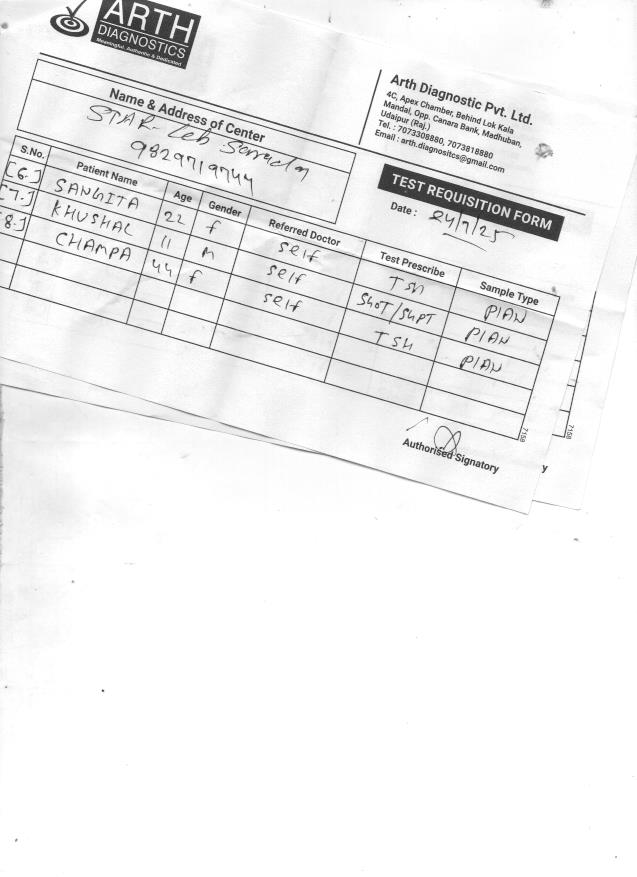 ARTH
DIAGNOSTICS
Meaningful, Authentic & Dedicated
Arth Diagnostic Pvt. Ltd.
4C, Apex Chamber, Behind Lok Kala
Mandal, Opp. Canara Bank, Madhuban,
Udaipur (Raj.)
Tel. : 7073308880, 7073818880
Email : arth.diagnositcs@gmail.com
Name & Address of Center
STAR-Leb
9829719744
TEST REQUISITION FORM
Date : 24/7/25
S.No. Patient Name Age Gender Referred Doctor Test Prescribe Sample Type
[6.] SANGITA 22 f self TSH PIAN
[7.] KHUSHAL 11 M self SHOT/SHPT PIAN
[8.] CHAMPA 44 f self TSH PIAN
7158
7158
Authorised Signatory
y